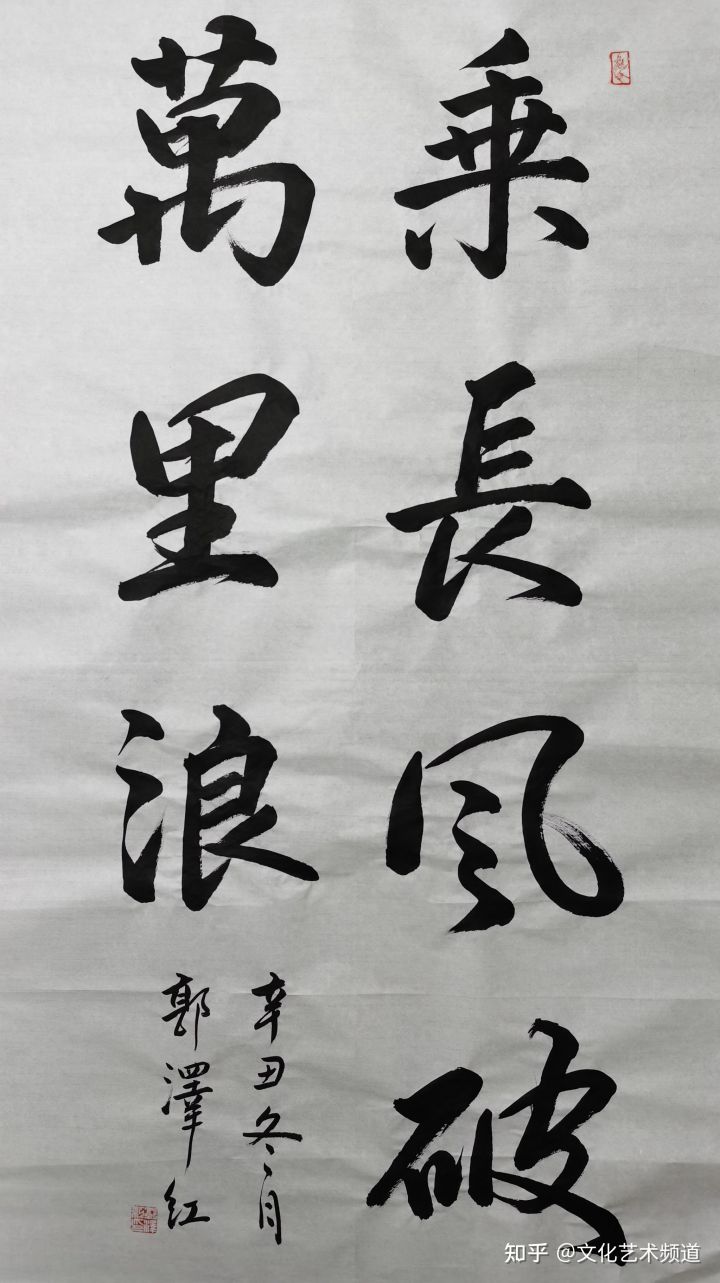 乘長风破
萬里浪
辛丑冬月
郭澤红
知乎 @文化艺术频道